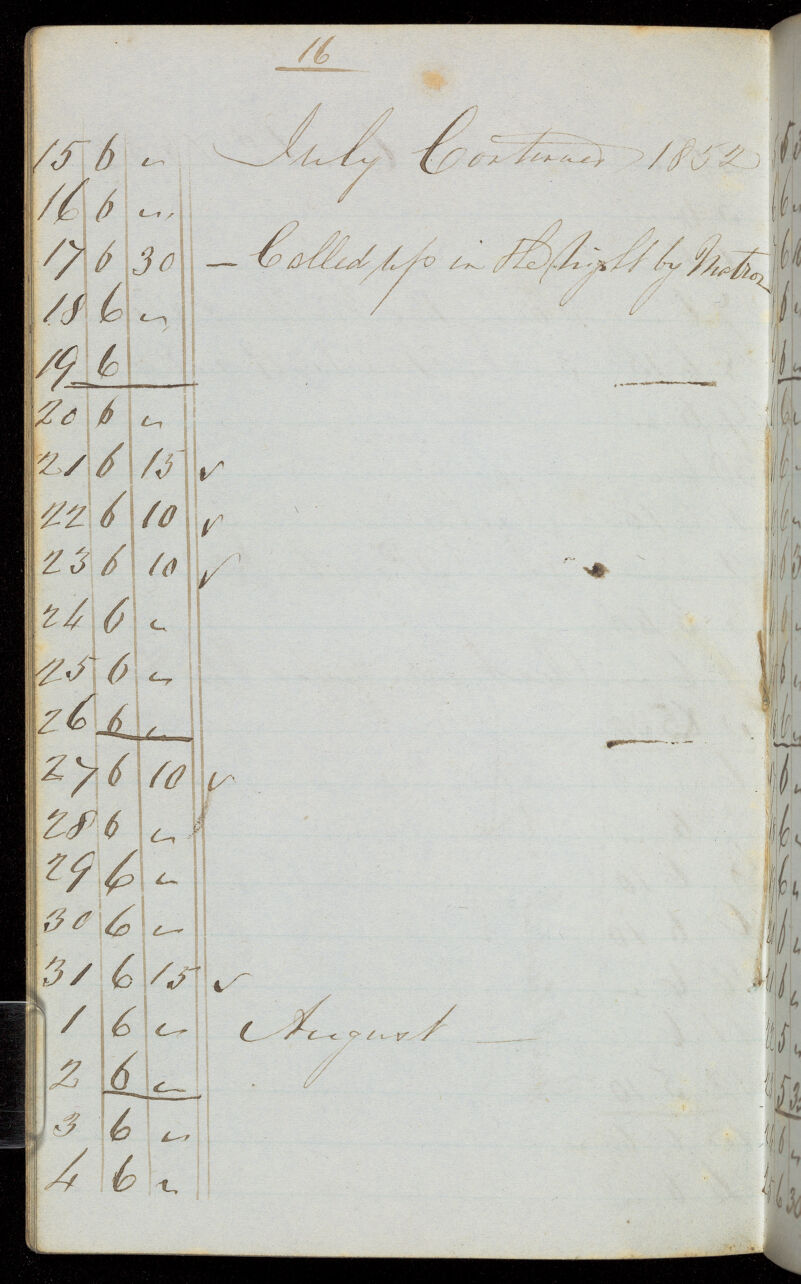 16
15 6 " July Continued 1852
16 6 "
17 6 30 — Called up in the Night by Matron
18 6 "
19 6
20 6 "
21 6 15 ✓
22 6 10 ✓
23 6 10 ✓
24 6 "
25 6 "
26 6 "
27 6 10 ✓
28 6 "
29 6 "
30 6 "
31 6 15 ✓
1 6 " August —
2 6 "
3 6 "
4 6 "